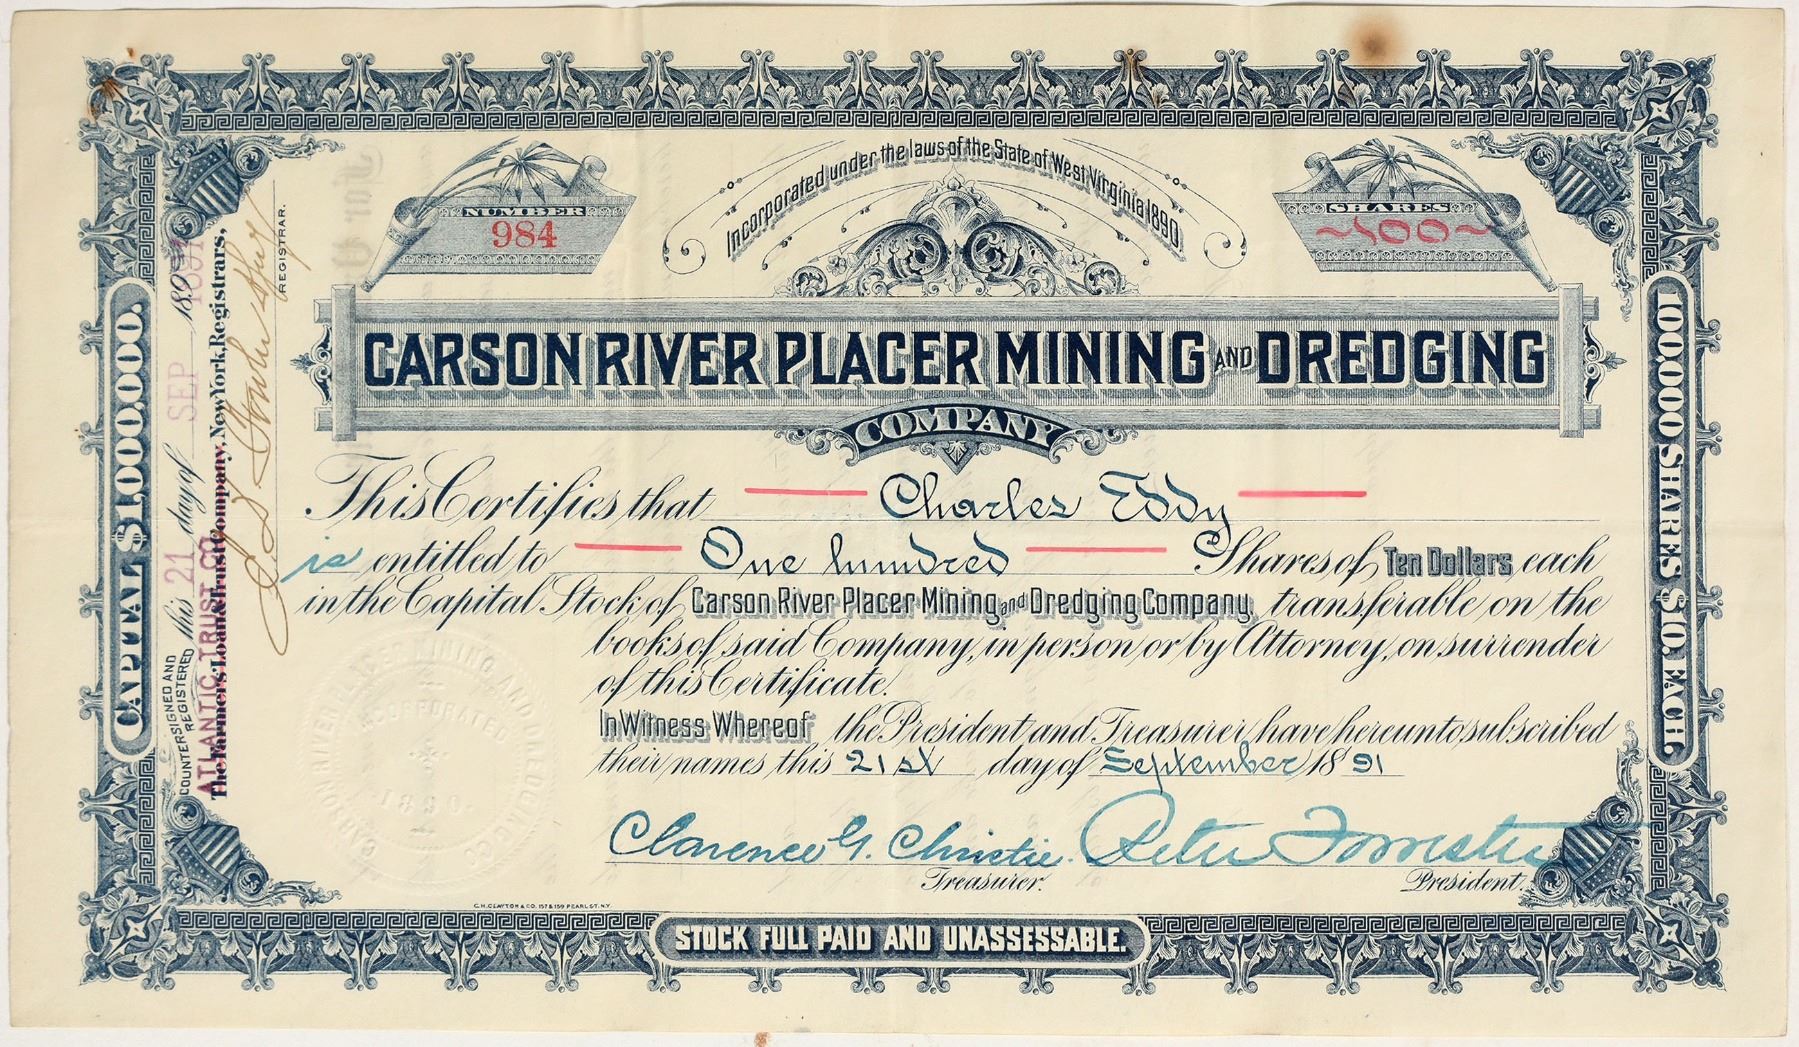 Incorporated under the laws of the State of West Virginia 1890.
NUMBER
984
SHARES
~100~
CARSON RIVER PLACER MINING AND DREDGING
COMPANY
This Certifies that Charles Eddy
is entitled to One hundred Shares of Ten Dollars each
in the Capital Stock of Carson River Placer Mining and Dredging Company, transferable on the
books of said Company, in person or by Attorney, on surrender
of this Certificate.
In Witness Whereof the President and Treasurer have hereunto subscribed
their names this 21st day of September 1891
Clarence G. Christie. Peter Forrester
Treasurer. President.
C.H. CLAYTON & CO. 157 & 159 PEARL ST. N.Y.
STOCK FULL PAID AND UNASSESSABLE.
CAPITAL $1,000,000.
100,000 SHARES $10. EACH.
COUNTERSIGNED AND
REGISTERED this 21 day of SEP 189 1891
ATLANTIC TRUST CO.
The Farmers' Loan & Trust Company, New York, Registrars,
REGISTRAR.
CARSON RIVER PLACER MINING AND DREDGING CO
INCORPORATED
1890